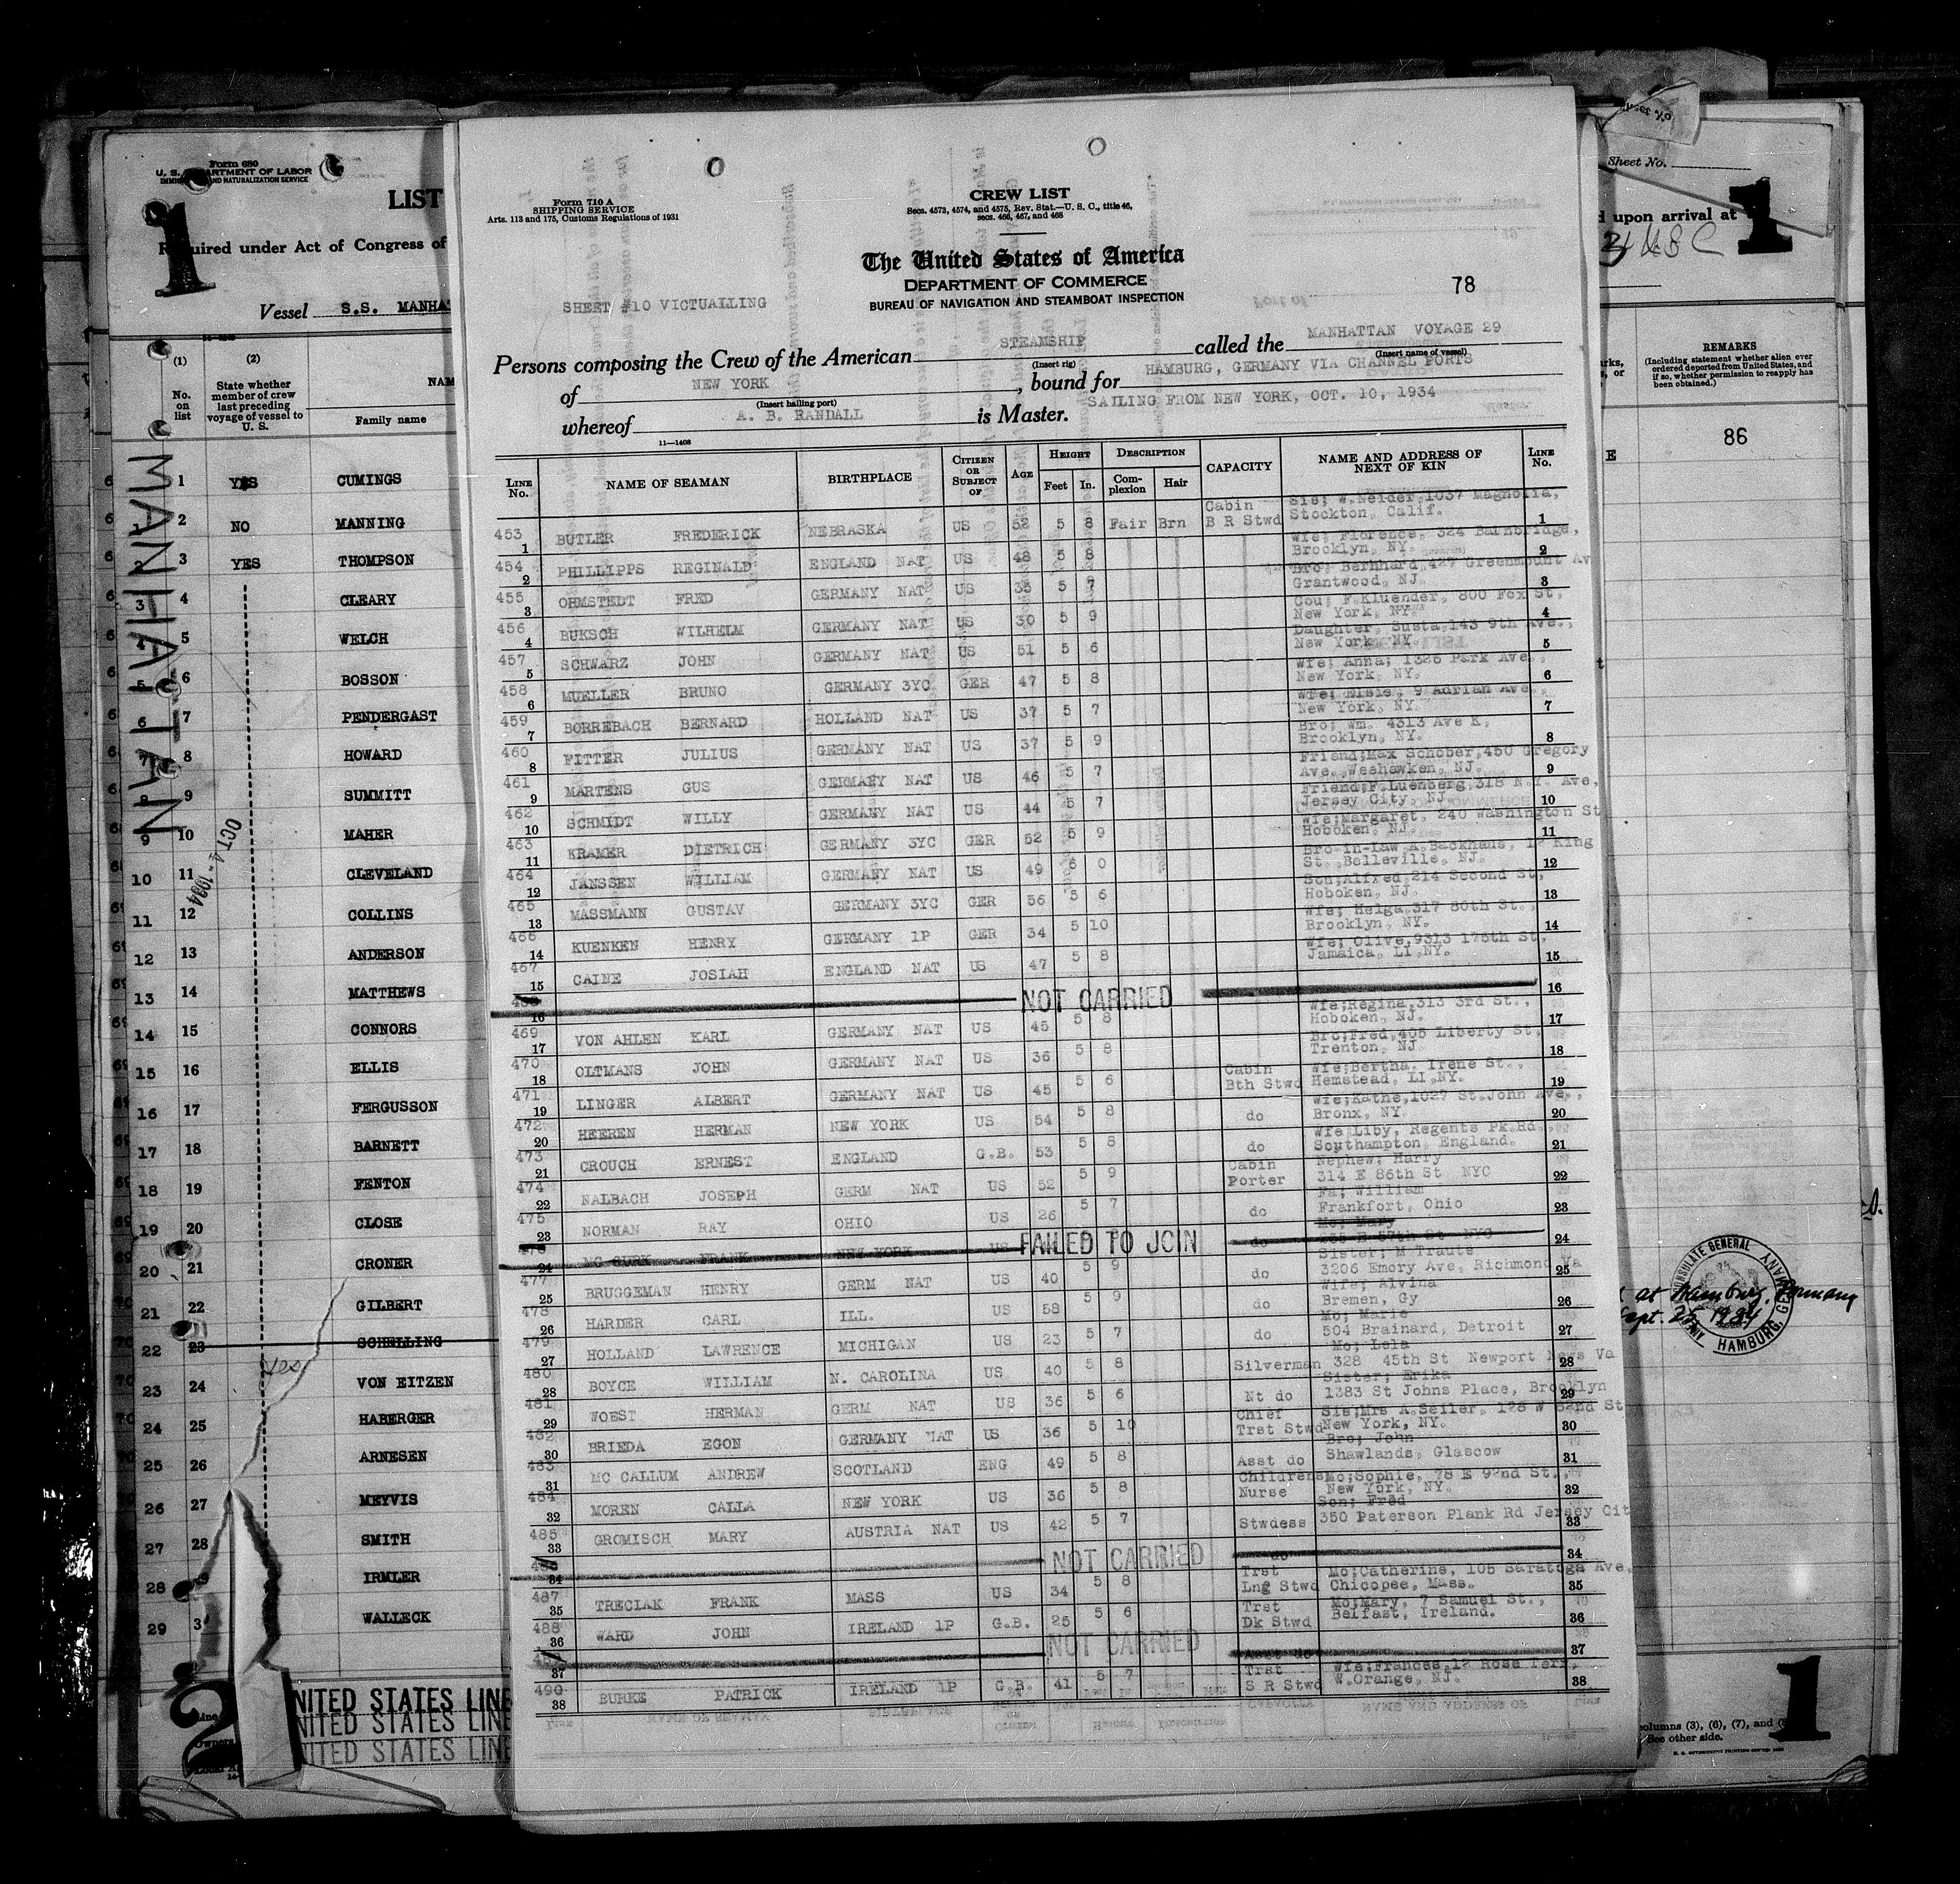 Form 680
U. S. DEPARTMENT OF LABOR
IMMIGRATION AND NATURALIZATION SERVICE
1
LIST
Required under Act of Congress of
Vessel S.S. MANHAT
(1) (2)
No. on list
State whether member of crew last preceding voyage of vessel to U. S.
NAM
Family name
MANHATTAN
OCT 4 - 1934
1 YES CUMINGS
1 2 NO MANNING
2 3 YES THOMPSON
3 4 CLEARY
4 5 WELCH
5 6 BOSSON
6 7 PENDERGAST
7 8 HOWARD
8 9 SUMMITT
9 10 MAHER
10 11 CLEVELAND
11 12 COLLINS
12 13 ANDERSON
13 14 MATTHEWS
14 15 CONNORS
15 16 ELLIS
16 17 FERGUSSON
17 18 BARNETT
18 19 FENTON
19 20 CLOSE
20 21 CRONER
21 22 GILBERT
22 23 SCHELLING
23 24 yes VON EITZEN
24 25 HABERGER
25 26 ARNESEN
26 27 MEYVIS
27 28 SMITH
28 IRMLER
29 3 WALLECK
2
NITED STATES LINE
NITED STATES LINE
NITED STATES LINE
Form 710 A
SHIPPING SERVICE
Arts. 113 and 175, Customs Regulations of 1931
CREW LIST
Secs. 4573, 4574, and 4575, Rev. Stat.—U. S. C., title 46,
secs. 466, 467, and 468
The United States of America
DEPARTMENT OF COMMERCE
BUREAU OF NAVIGATION AND STEAMBOAT INSPECTION
78
SHEET #10 VICTUALLING
Persons composing the Crew of the American STEAMSHIP called the MANHATTAN VOYAGE 29
(Insert rig) (Insert name of vessel)
of NEW YORK , bound for HAMBURG, GERMANY VIA CHANNEL PORTS
(Insert hailing port)
whereof A. B. RANDALL is Master. SAILING FROM NEW YORK, OCT. 10, 1934
11—1408
LINE No. NAME OF SEAMAN BIRTHPLACE CITIZEN OR SUBJECT OF AGE HEIGHT Feet In. DESCRIPTION Complexion Hair CAPACITY NAME AND ADDRESS OF NEXT OF KIN LINE No.
453 1 BUTLER FREDERICK NEBRASKA US 52 5 8 Fair Brn Cabin B R Stwd Sis; W.Neider,1037 Magnolia, Stockton, Calif. 1
454 2 PHILLIPPS REGINALD ENGLAND NAT US 48 5 8 Wfe; Florence, 324 Bainbridge, Brooklyn, NY. 2
455 3 ORMSTEDT FRED GERMANY NAT US 35 5 7 Bro; Bernhard,427 Greenmount Av Grantwood, NJ. 3
456 4 BUKSCH WILHELM GERMANY NAT US 30 5 9 Cou; F.Kluender, 800 Fox St, New York, NY. 4
457 5 SCHWARZ JOHN GERMANY NAT US 51 5 6 Daughter, Susta,143 9th Ave., New York, NY. 5
458 6 MUELLER BRUNO GERMANY 3YC GER 47 5 8 Wfe; Anna; 1326 Park Ave., New York, NY. 6
459 7 BORREBACH BERNARD HOLLAND NAT US 37 5 7 Wfe; Elsie, 9 Adrian Ave., New York, NY. 7
460 8 FITTER JULIUS GERMANY NAT US 37 5 9 Bro; Wm. 4313 Ave K, Brooklyn, NY. 8
461 9 MARTENS GUS GERMANY NAT US 46 5 7 Friend;Max Schober,450 Gregory Ave.,Weehawken, NJ. 9
462 10 SCHMIDT WILLY GERMANY NAT US 44 5 7 Friend;F.Luenberg,318 N.Y. Ave, Jersey City, NJ. 10
463 11 KRAMER DIETRICH GERMANY 3YC GER 52 5 9 Wfe;Margaret, 240 Washington St Hoboken, NJ. 11
464 12 JANSSEN WILLIAM GERMANY NAT US 49 6 0 Bro-in-Law A.Backhaus, 12 King St., Belleville, NJ. 12
465 13 MASSMANN GUSTAV GERMANY 3YC GER 56 5 6 Son;Alfred,214 Second St, Hoboken, NJ. 13
466 14 KUENKEN HENRY GERMANY 1P GER 34 5 10 Wfe; Helga,317 80th St., Brooklyn, NY. 14
467 15 CAINE JOSIAH ENGLAND NAT US 47 5 8 Wfe; Olive,9313 175th St, Jamaica, LI,NY. 15
468 16 NOT CARRIED 16
469 17 VON AHLEN KARL GERMANY NAT US 45 5 8 Wfe;Regina,313 3rd St., Hoboken, NJ. 17
470 18 OLTMANS JOHN GERMANY NAT US 36 5 8 Bro;Fred,405 Liberty St, Trenton, NJ 18
471 19 LINGER ALBERT GERMANY NAT US 45 5 6 Cabin Bth Stwd Wfe;Bertha, Irene St., Hemstead, LI,NY. 19
472 20 HEEREN HERMAN NEW YORK US 54 5 8 do Wfe;Kathe,1027 St.John Ave., Bronx, NY. 20
473 21 CROUCH ERNEST ENGLAND G.B. 53 5 8 do Wfe Liby, Regents Pk.Rd., Southampton, England. 21
474 22 NALBACH JOSEPH GERM NAT US 52 5 9 Cabin Porter Nephew; Harry 314 E 86th St NYC 22
475 23 NORMAN RAY OHIO US 26 5 7 do Fa; William Frankfort, Ohio 23
476 24 MC GURK FRANK NEW YORK US FAILED TO JOIN do Mo; Mary E 57th St NYC 24
477 25 BRUGGEMAN HENRY GERM NAT US 40 5 9 do Sister; M Traute 3206 Emory Ave, Richmond Va 25
478 26 HARDER CARL ILL. US 58 5 9 do Wife; Alvina Bremen, Gy 26
479 27 HOLLAND LAWRENCE MICHIGAN US 23 5 7 do Mo; Marie 504 Brainard, Detroit 27
480 28 BOYCE WILLIAM N. CAROLINA US 40 5 8 Silverman Mo; Lela 328 45th St Newport News Va 28
481 29 WOEST HERMAN GERM NAT US 36 5 6 Nt do Sister; Erika 1383 St Johns Place, Brooklyn 29
482 30 BRIEDA EGON GERMANY NAT US 36 5 10 Chief Trst Stwd Sis;Mrs A.Seiler, 128 W 82nd St New York, NY. 30
483 31 MC CALLUM ANDREW SCOTLAND ENG 49 5 8 Asst do Bro; John Shawlands, Glascow 31
484 32 MOREN CALLA NEW YORK US 36 5 8 Childrens Nurse Mo;Sophie, 78 E 92nd St., New York, NY. 32
485 33 GROMISCH MARY AUSTRIA NAT US 42 5 7 Stwdess Son; Fred 350 Paterson Plank Rd Jersey Cit 33
486 34 NOT CARRIED do 34
487 35 TRECIAK FRANK MASS US 34 5 8 Trst Lng Stwd Mo;Catherine, 105 Saratoga Ave, Chicopee, Mass. 35
488 36 WARD JOHN IRELAND 1P G.B. 25 5 6 Trst Dk Stwd Mo;Mary, 7 Samuel St., Belfast, Ireland. 36
37 NOT CARRIED Asst do 37
490 38 BURKE PATRICK IRELAND 1P G.B. 41 5 7 Trst S R Stwd Wfe;Frances,12 Rose Terr, W.Orange, NJ. 38
Sheet No.
d upon arrival at
1
REMARKS
(Including statement whether alien ever ordered deported from United States, and if so, whether permission to reapply has been obtained.)
86
E
CONSULATE GENERAL
HAMBURG, GERMANY
at Hamburg, Germany
Sept. 1934
columns (3), (6), (7), and (8
See other side.
1